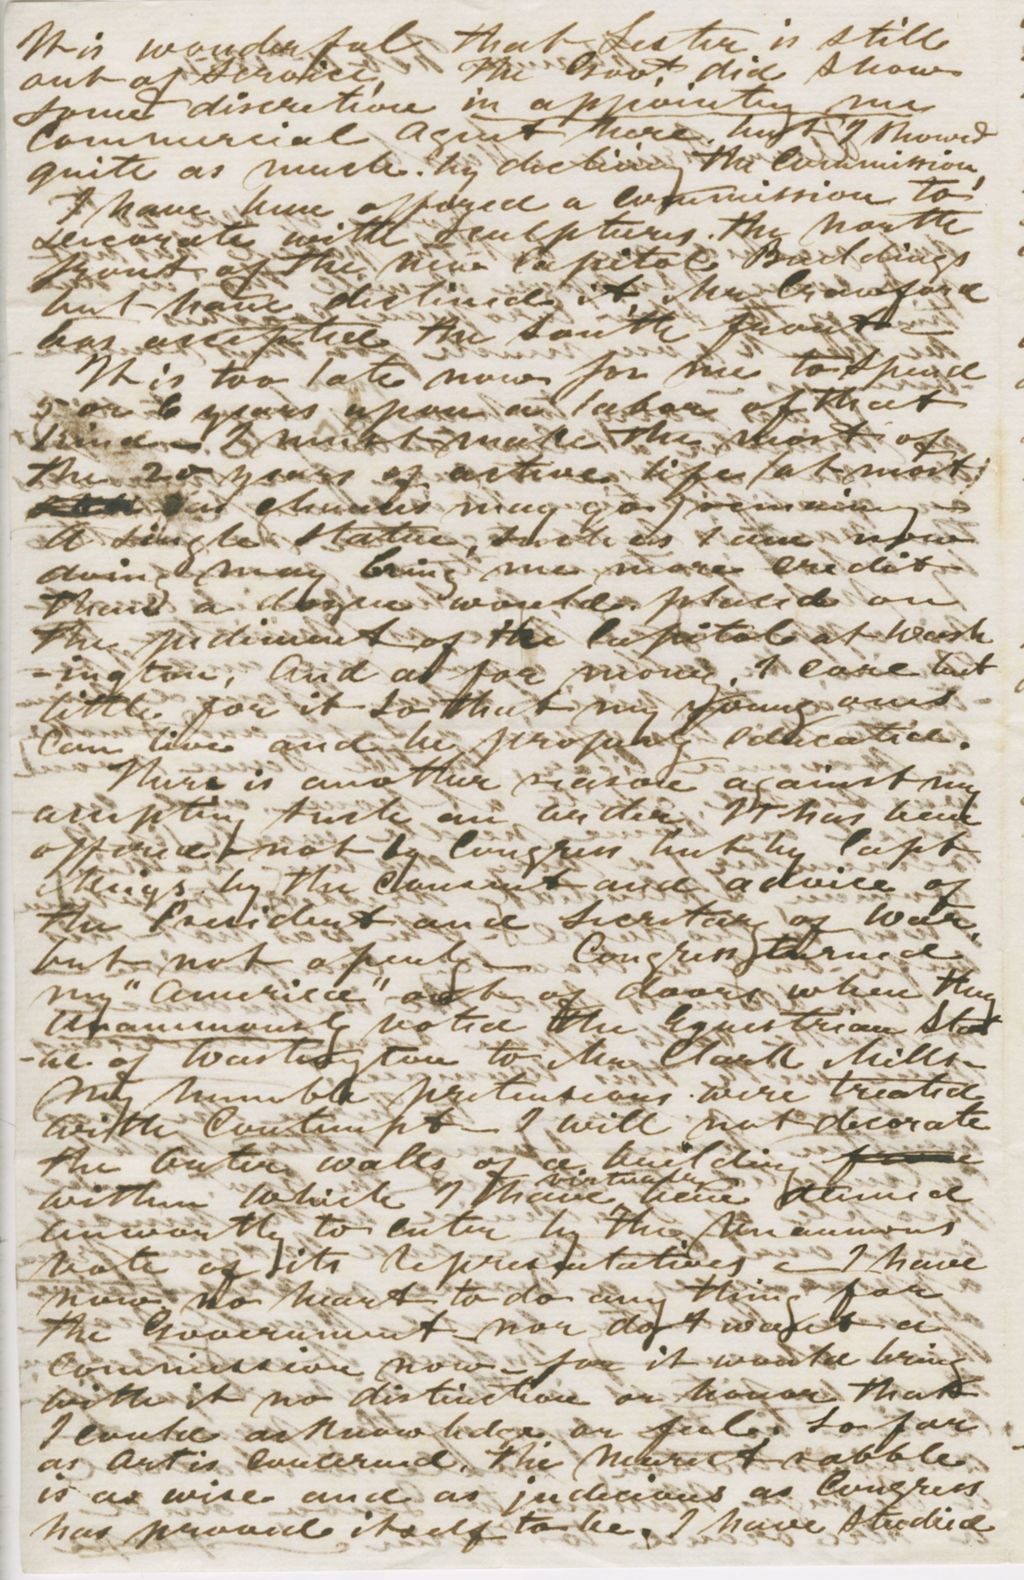 It is wonderful that Lester is still
out of service, The Govt. did show
some discretion in appointing me
Commercial Agent here, but I showed
quite as much by declining the Commission,
I have been offered a commission to
decorate with sculptures the North
front of the new Capitol Buildings
but have declined it, Mr Crawford
has accepted the South front—
It is too late now for me to spend
5 or 6 years upon a labor of that
kind — I must make the most of
the 20 years of active life (at most;
as chances may go) remaining —
A single statue, such as I am now
doing may bring me more credit
than a dozen would placed on
the pediment of the Capitol at Wash
-ington, And as for money, I care but
little for it so that my young ones
can live and be properly educated.
There is another reason against my
accepting such an order. It has been
offered not by Congress but by Capt
Meigs by the consent and advice of
the President and Secretary of War,
but not openly — Congress turned
my "America" out of doors when they
Unanimously voted the Equestrian Stat
-ue of Washington to Mr Clark Mills—
My humble pretensions were treated
with Contempt — I will not decorate
the outer walls of a building
within which I have virtually been deemed
unworthy to enter by the Unanimous
vote of its representatives — I have
now no heart to do any thing for
the Government nor do I want a
Commission now — for it would bring
with it no distinction or honor that
I could acknowledge or feel. So far
as Art is concerned, the merest rabble
is as wise and as judicious as Congress
has proved itself to be. I have studied